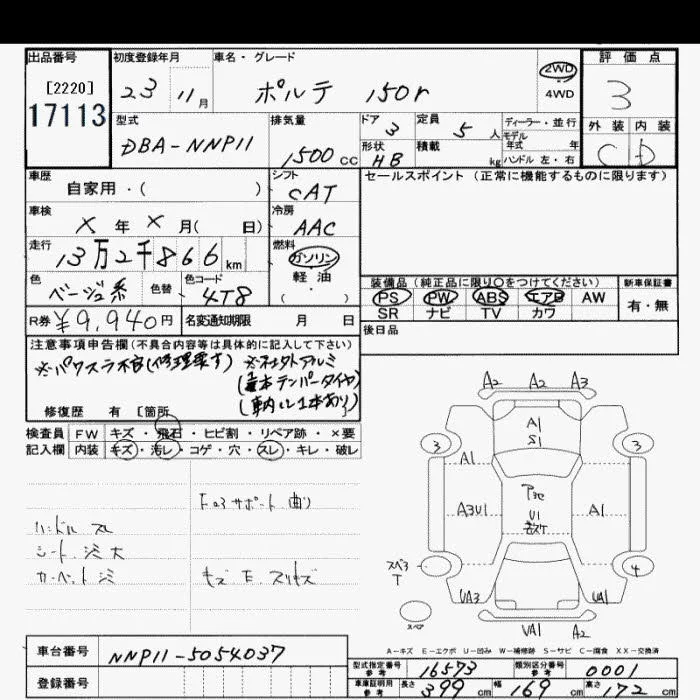 出品番号 初度登録年月 車名・グレード 評価点
[2220] 23 11月 ポルテ 150r 2WD 4WD 3
17113 型式 排気量 ドア 3 定員 5人 ディーラー・並行 外装 内装
DBA-NNP11 1500cc 形状 HB 積載 kg モデル年式 年 ハンドル 左・右 C D
車歴 自家用・( ) シフト CAT セールスポイント (正常に機能するものに限ります)
車検 X年X月( 日) 冷房 AAC
走行 13万2千866km 燃料 ガソリン 軽油 ( ・ )
色 ベージュ系 色替 色コード 4T8
装備品 (純正品に限り○をつけてください) 新車保証書
PS PW ABS エアB AW 有・無
SR ナビ TV カワ
R券 ¥9,940円 名変通知期限 月 日 後日品
注意事項申告欄(不具合内容等は具体的に記入して下さい)
※パワスラ不良(修理要す) ※社外アルミ
(1本テンパータイヤ)
(車内に1本あり)
修復歴 有 [箇所
検査員 FW キズ・飛石・ヒビ割・リペア跡・×要
記入欄 内装 キズ・汚レ・コゲ・穴・スレ・キレ・破レ
Fロアサポート曲り
ハンドル スレ
シート シミ大
カーペット シミ
A2 A2 A3
A1
S1
3 3
A1
U1
A3U1 A1
スペア
T
4
UA3 UA1
スペア
UA1 A2
A-キズ E-エクボ U-凹み W-補修跡 S-サビ C-腐食 XX-交換済
車台番号 NNP11-5054037
登録番号
型式指定番号 参考 16573 類別区分番号 参考 0001
車庫証明用 参考 長さ 399cm 幅 169cm 高さ 172cm